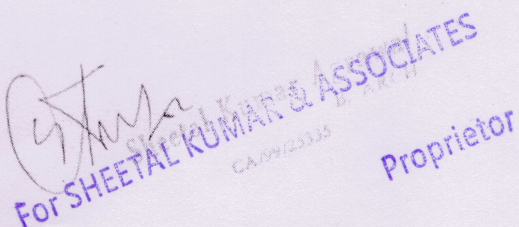 For SHEETAL KUMAR & ASSOCIATES
Sheetal Kumar Agrawal
B. ARCH
CA/99/25335
Proprietor